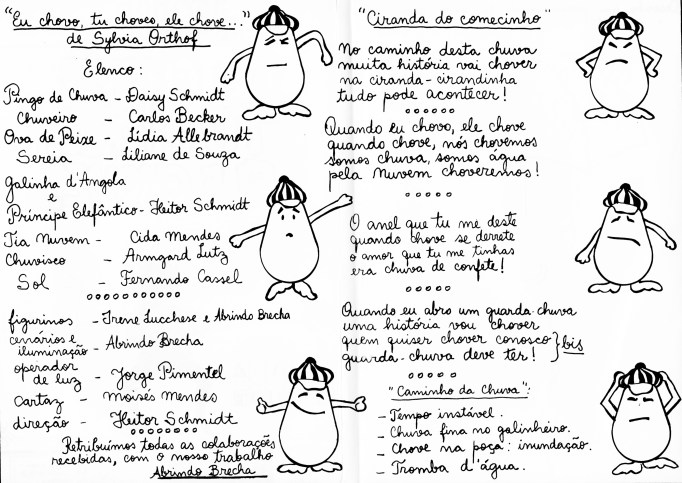 "Eu chovo, tu choves, ele chove..."
de Sylvia Orthof
Elenco:
Pingo de Chuva - Daisy Schmidt
Chuveiro - Carlos Becker
Ova de Peixe - Lídia Allebrandt
Sereia - Liliane de Souza
galinha d'Angola
e
Príncipe Elefântico - Heitor Schmidt
Tia Nuvem - Cida Mendes
Chuvisco - Armgard Lutz
Sol - Fernando Cassel
figurinos - Irene Lucchese e Abrindo Brecha
cenários e
iluminação - Abrindo Brecha
operador
de luz - Jorge Pimentel
cartaz - moisés mendes
direção - Heitor Schmidt
Retribuímos todas as colaborações
recebidas, com o nosso trabalho
Abrindo Brecha
"Ciranda do comecinho"
No caminho desta chuva
muita história vai chover
na ciranda-cirandinha
tudo pode acontecer!
Quando eu chovo, ele chove
quando chove, nós chovemos
somos chuva, somos água
pela Nuvem choveremos!
O anel que tu me deste
quando chove se derrete
o amor que tu me tinhas
era chuva de confete!
Quando eu abro um guarda-chuva
uma história vou chover
quem quiser chover conosco } bis
guarda-chuva deve ter!
"Caminho da Chuva":
- Tempo instável.
- Chuva fina no galinheiro.
- Chove na poça: inundação.
- Tromba d'água.